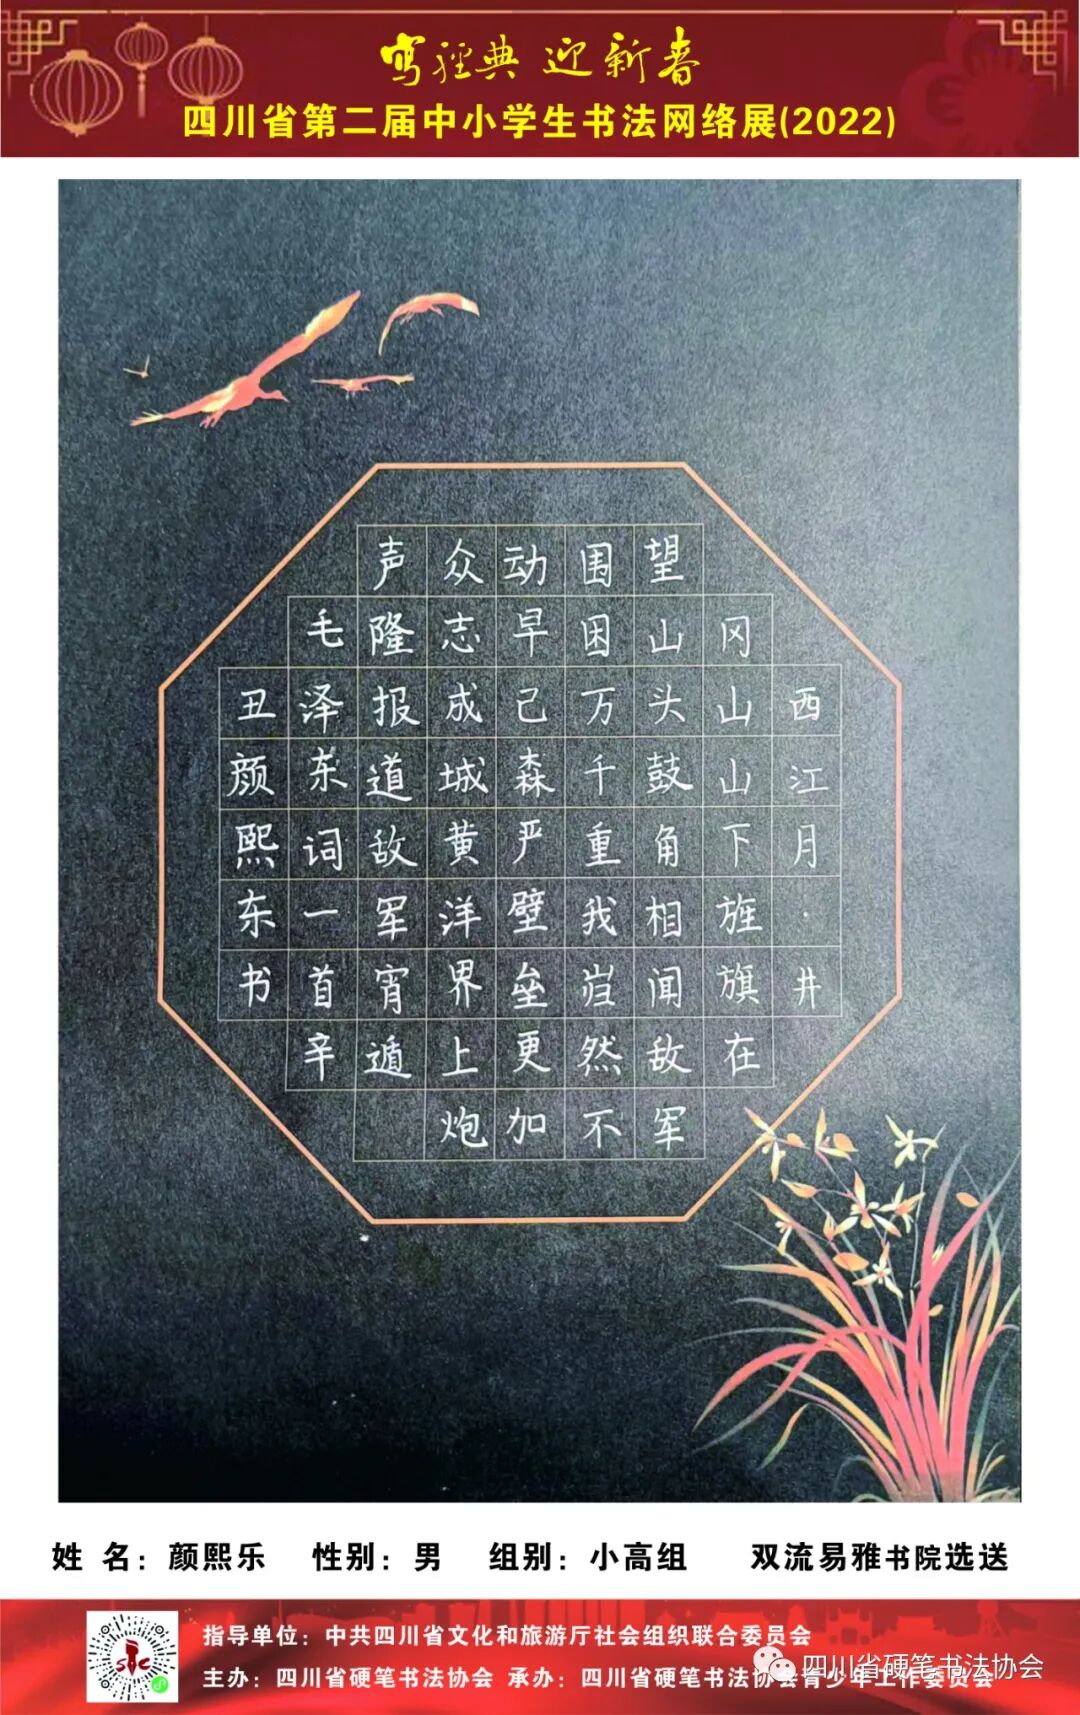 写经典 迎新春
四川省第二届中小学生书法网络展(2022)
西江月·井
冈山山下旌旗在
望山头鼓角相闻敌军
围困万千重我岿然不
动早己森严壁垒更加
众志成城黄洋界上炮
声隆报道敌军宵遁
毛泽东词一首辛
丑颜熙东书
姓 名：颜熙乐 性别：男 组别：小高组 双流易雅书院选送
指导单位：中共四川省文化和旅游厅社会组织联合委员会
主办：四川省硬笔书法协会 承办：四川省硬笔书法协会青少年工作委员会
四川省硬笔书法协会